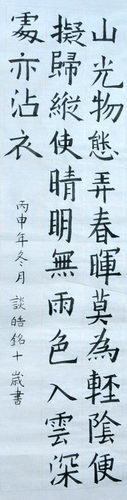 山光物態弄春暉莫為輕陰便
擬歸縱使晴明無雨色入雲深
處亦沾衣
丙申年冬月 談皓銘十歲書